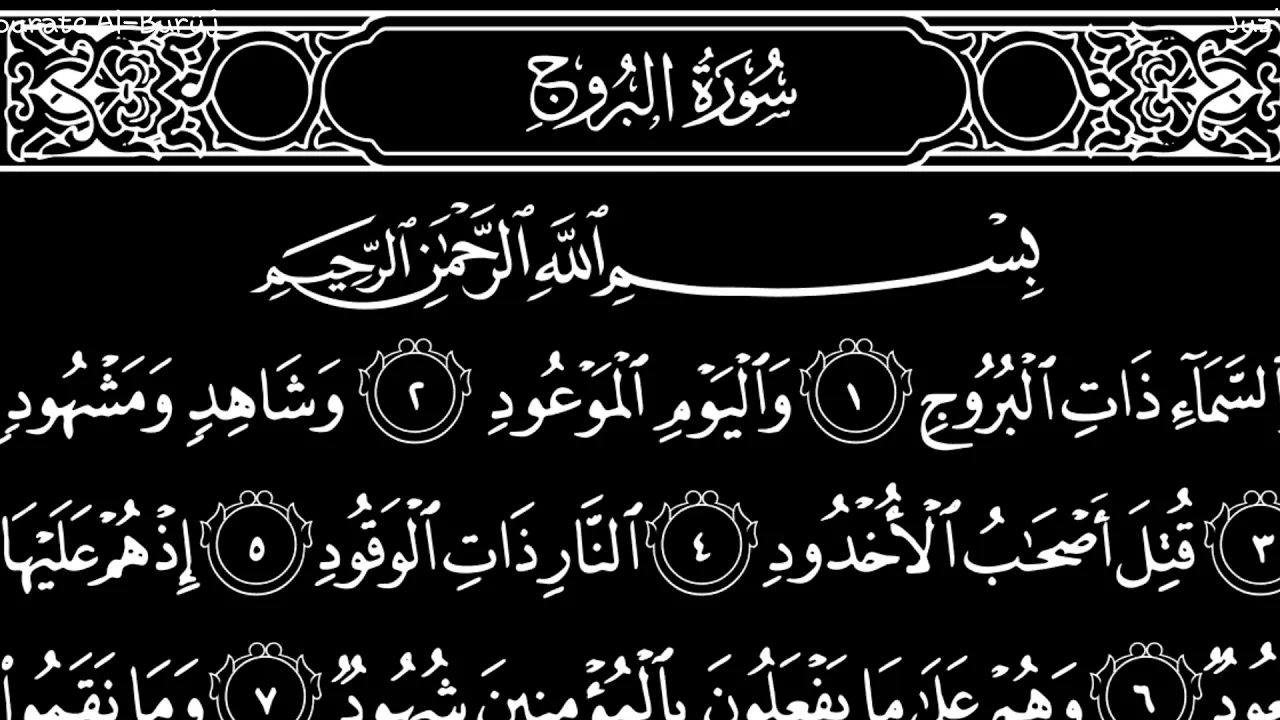 Sourate Al-Burūj Juz'
سُورَةُ البُرُوجِ
بِسْمِ ٱللَّهِ ٱلرَّحْمَٰنِ ٱلرَّحِيمِ
ٱلسَّمَآءِ ذَاتِ ٱلْبُرُوجِ ١ وَٱلْيَوْمِ ٱلْمَوْعُودِ ٢ وَشَاهِدٍ وَمَشْهُودٍ
٣ قُتِلَ أَصْحَٰبُ ٱلْأُخْدُودِ ٤ ٱلنَّارِ ذَاتِ ٱلْوَقُودِ ٥ إِذْ هُمْ عَلَيْهَا
قُعُودٌ ٦ وَهُمْ عَلَىٰ مَا يَفْعَلُونَ بِٱلْمُؤْمِنِينَ شُهُودٌ ٧ وَمَا نَقَمُوا۟